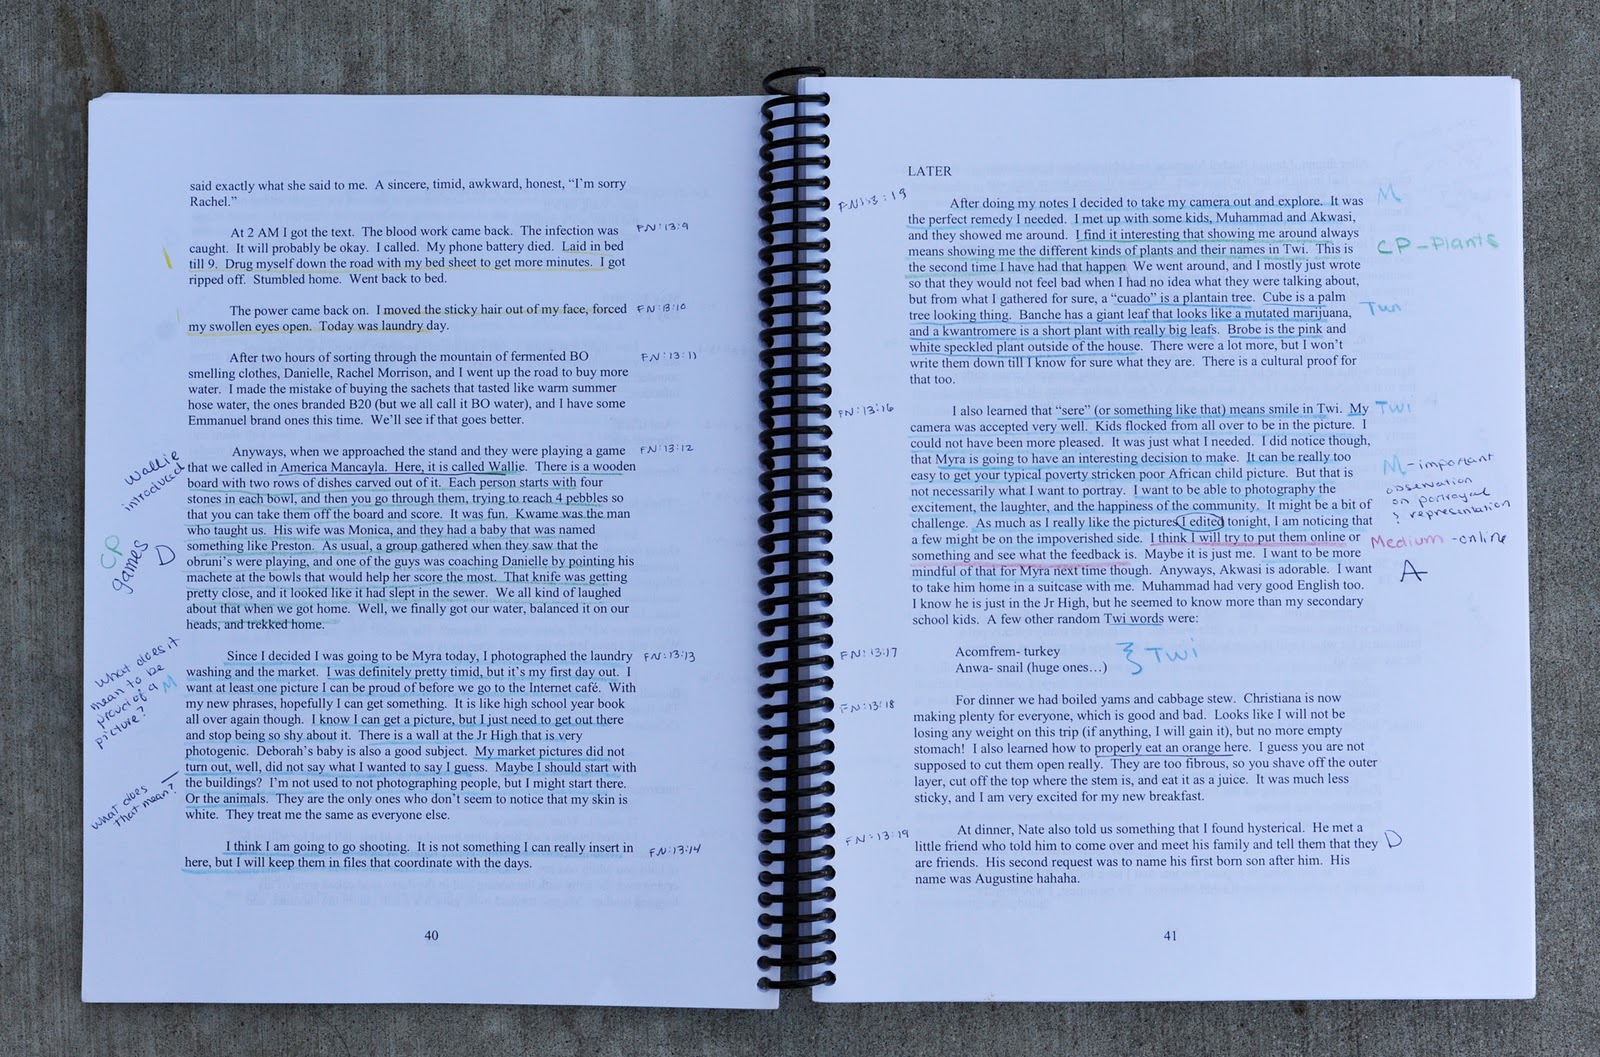 said exactly what she said to me.  A sincere, timid, awkward, honest, “I’m sorry
Rachel.”
At 2 AM I got the text.  The blood work came back.  The infection was
FN:13:9
caught.  It will probably be okay.  I called.  My phone battery died.  Laid in bed
till 9.  Drug myself down the road with my bed sheet to get more minutes.  I got
ripped off.  Stumbled home.  Went back to bed.
The power came back on.  I moved the sticky hair out of my face, forced
FN:13:10
my swollen eyes open.  Today was laundry day.
After two hours of sorting through the mountain of fermented BO
FN:13:11
smelling clothes, Danielle, Rachel Morrison, and I went up the road to buy more
water.  I made the mistake of buying the sachets that tasted like warm summer
hose water, the ones branded B20 (but we all call it BO water), and I have some
Emmanuel brand ones this time.  We’ll see if that goes better.
Anyways, when we approached the stand and they were playing a game
FN:13:12
that we called in America Mancayla.  Here, it is called Wallie.  There is a wooden
board with two rows of dishes carved out of it.  Each person starts with four
stones in each bowl, and then you go through them, trying to reach 4 pebbles so
that you can take them off the board and score.  It was fun.  Kwame was the man
who taught us.  His wife was Monica, and they had a baby that was named
something like Preston.  As usual, a group gathered when they saw that the
obruni’s were playing, and one of the guys was coaching Danielle by pointing his
machete at the bowls that would help her score the most.  That knife was getting
pretty close, and it looked like it had slept in the sewer.  We all kind of laughed
about that when we got home.  Well, we finally got our water, balanced it on our
heads, and trekked home.
Wallie
introduced
CP
games
D
Since I decided I was going to be Myra today, I photographed the laundry
FN:13:13
washing and the market.  I was definitely pretty timid, but it’s my first day out.  I
want at least one picture I can be proud of before we go to the Internet café.  With
my new phrases, hopefully I can get something.  It is like high school year book
all over again though.  I know I can get a picture, but I just need to get out there
and stop being so shy about it.  There is a wall at the Jr High that is very
photogenic.  Deborah’s baby is also a good subject.  My market pictures did not
turn out, well, did not say what I wanted to say I guess.  Maybe I should start with
the buildings?  I’m not used to not photographing people, but I might start there.
Or the animals.  They are the only ones who don’t seem to notice that my skin is
white.  They treat me the same as everyone else.
What does it
mean to be
proud of a
picture?
M
What does
that mean?
I think I am going to go shooting.  It is not something I can really insert in
FN:13:14
here, but I will keep them in files that coordinate with the days.
40
LATER
After doing my notes I decided to take my camera out and explore.  It was
M
the perfect remedy I needed.  I met up with some kids, Muhammad and Akwasi,
and they showed me around.  I find it interesting that showing me around always
means showing me the different kinds of plants and their names in Twi.  This is
CP-Plants
the second time I have had that happen  We went around, and I mostly just wrote
so that they would not feel bad when I had no idea what they were talking about,
but from what I gathered for sure, a “cuado” is a plantain tree.  Cube is a palm
tree looking thing.  Banche has a giant leaf that looks like a mutated marijuana,
and a kwantromere is a short plant with really big leafs.  Brobe is the pink and
white speckled plant outside of the house.  There were a lot more, but I won’t
write them down till I know for sure what they are.  There is a cultural proof for
that too.
FN:13:16
I also learned that “sere” (or something like that) means smile in Twi.  My
TWI
camera was accepted very well.  Kids flocked from all over to be in the picture.  I
could not have been more pleased.  It was just what I needed.  I did notice though,
that Myra is going to have an interesting decision to make.  It can be really too
easy to get your typical poverty stricken poor African child picture.  But that is
not necessarily what I want to portray.  I want to be able to photography the
excitement, the laughter, and the happiness of the community.  It might be a bit of
challenge.  As much as I really like the pictures I edited tonight, I am noticing that
a few might be on the impoverished side.  I think I will try to put them online or
something and see what the feedback is.  Maybe it is just me.  I want to be more
mindful of that for Myra next time though.  Anyways, Akwasi is adorable.  I want
to take him home in a suitcase with me.  Muhammad had very good English too.
I know he is just in the Jr High, but he seemed to know more than my secondary
school kids.  A few other random Twi words were:
M-important
observation
on portrayal
& representation
Medium -online
A
FN:13:17
Acomfrem- turkey
Anwa- snail (huge ones…)
TWI
FN:13:18
For dinner we had boiled yams and cabbage stew.  Christiana is now
making plenty for everyone, which is good and bad.  Looks like I will not be
losing any weight on this trip (if anything, I will gain it), but no more empty
stomach!  I also learned how to properly eat an orange here.  I guess you are not
supposed to cut them open really.  They are too fibrous, so you shave off the outer
layer, cut off the top where the stem is, and eat it as a juice.  It was much less
sticky, and I am very excited for my new breakfast.
FN:13:19
At dinner, Nate also told us something that I found hysterical.  He met a
little friend who told him to come over and meet his family and tell them that they
D
are friends.  His second request was to name his first born son after him.  His
name was Augustine hahaha.
41